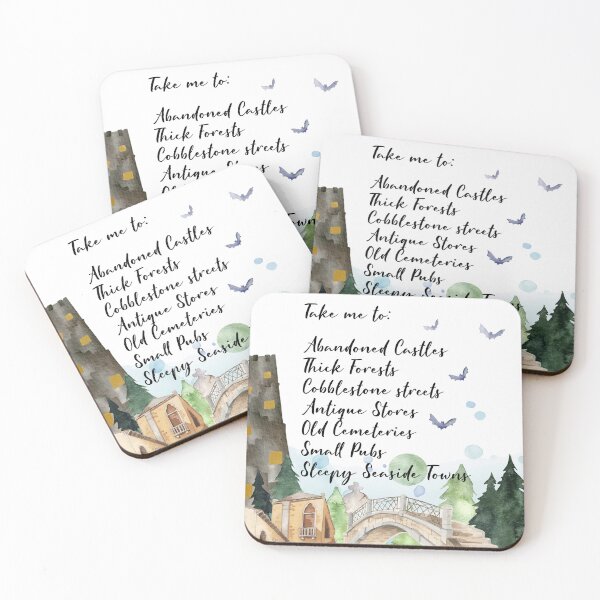 Take me to:
Abandoned Castles
Thick Forests
Cobblestone streets
Antique Stores
Take me to:
Abandoned Castles
Thick Forests
Cobblestone streets
Antique Stores
Old Cemeteries
Small Pubs
Sleepy Seaside
Take me to:
Abandoned Castles
Thick Forests
Cobblestone streets
Antique Stores
Old Cemeteries
Small Pubs
Sleepy Seaside
Take me to:
Abandoned Castles
Thick Forests
Cobblestone streets
Antique Stores
Old Cemeteries
Small Pubs
Sleepy Seaside Towns